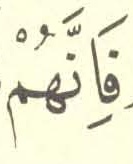 فَاِنَّهُمْ